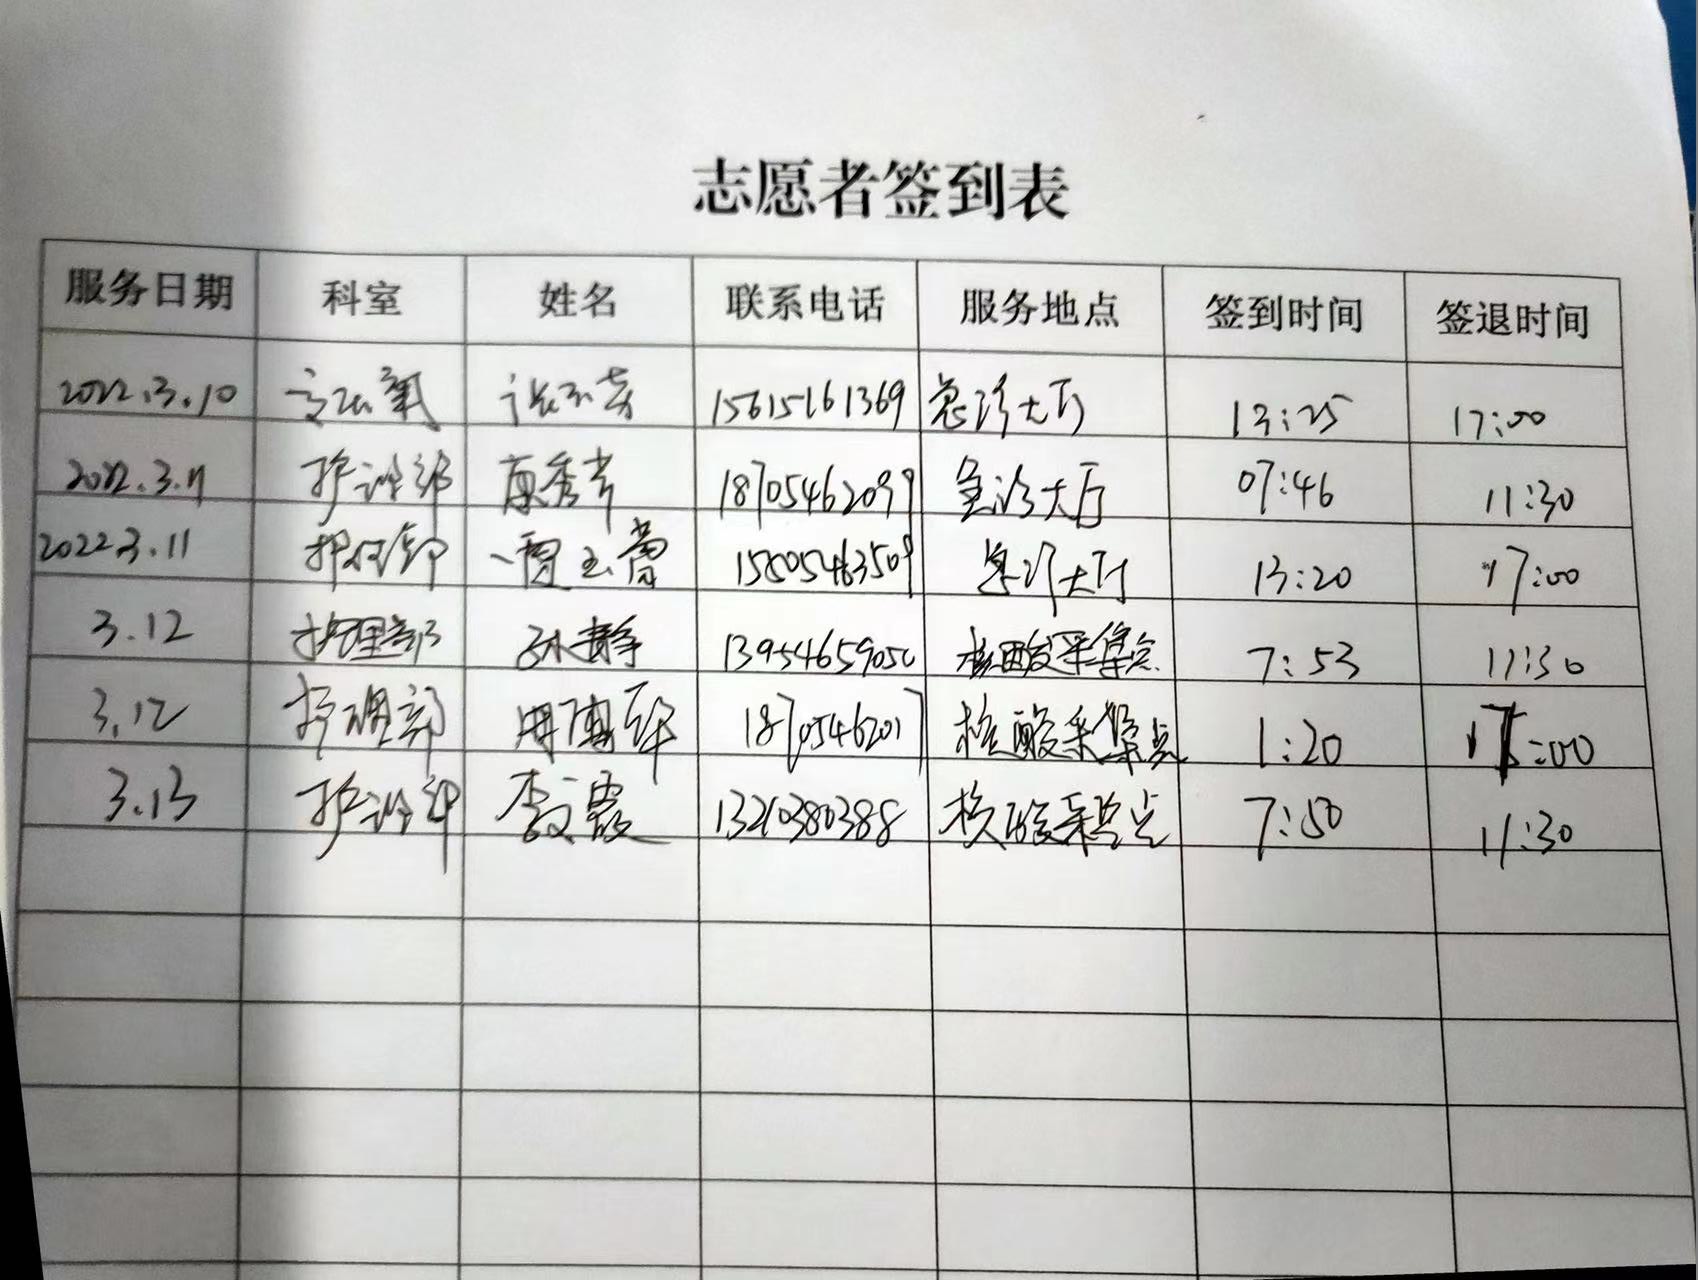 志愿者签到表
服务日期 科室 姓名 联系电话 服务地点 签到时间 签退时间
2022.3.10 高压氧 15615161369 急诊大厅 13:25 17:00
2022.3.11 护理部 18705462099 急诊大厅 07:46 11:30
2022.3.11 护理部 15805463509 急诊大厅 13:20 17:00
3.12 护理部 孙静 13954659050 核酸采集点 7:53 11:30
3.12 护理部 18705462017 核酸采集点 1:20 :00
3.13 护理部 李霞 13210380388 核酸采集点 7:50 11:30